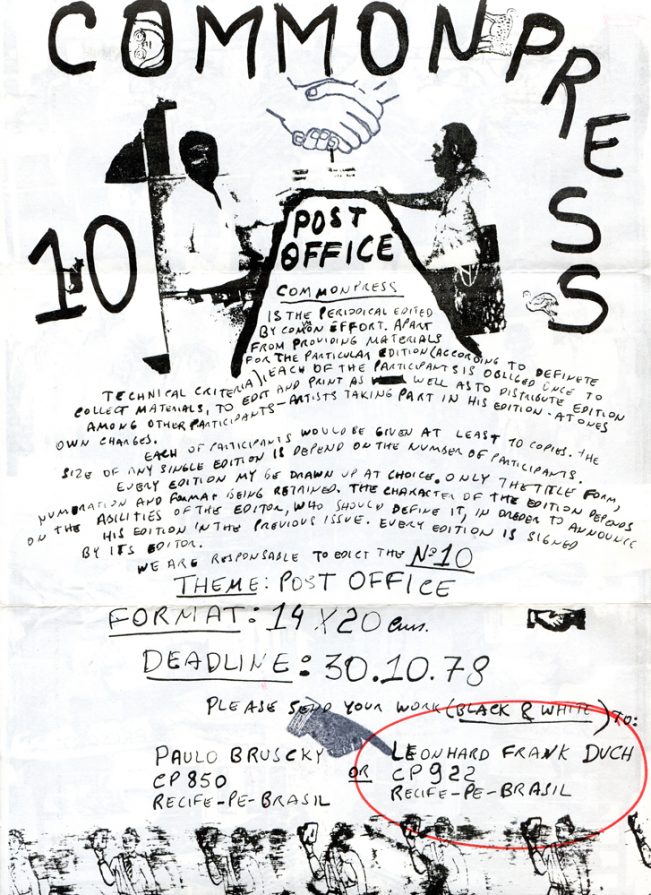 COMMONPRESS
10
POST
OFFICE
COMMONPRESS
IS THE PERIODICAL EDITED
BY COMON EFFORT. APART
FROM PROVIDING MATERIALS
FOR THE PARTICULAR EDITION (ACCORDING TO DEFINETE
TECHNICAL CRITERIA), EACH OF THE PARTICIPANTS IS OBLIGED ONCE TO
COLLECT MATERIALS, TO EDIT AND PRINT AS WELL AS TO DISTRIBUTE EDITION
AMONG OTHER PARTICIPANTS - ARTISTS TAKING PART IN HIS EDITION - AT ONES
OWN CHARGES.
EACH OF PARTICIPANTS WOULD BE GIVEN AT LEAST 10 COPIES. THE
SIZE OF ANY SINGLE EDITION IS DEPEND ON THE NUMBER OF PARTICIPANTS.
EVERY EDITION MY BE DRAWN UP AT CHOICE. ONLY THE TITLE FORM,
NUMERATION AND FORMAT BEING RETAINED. THE CHARACTER OF THE EDITION DEPENDS
ON THE ABILITIES OF THE EDITOR, WHO SHOULD DEFINE IT, IN OREDER TO ANNOUNCE
HIS EDITION IN THE PREVIOUS ISSUE. EVERY EDITION IS SIGNED
BY ITS EDITOR.
WE ARE RESPONSABLE TO EDICT THE Nº 10
THEME: POST OFFICE
FORMAT: 14 X 20 Cms.
DEADLINE: 30.10.78
PLEASE SEND YOUR WORK (BLACK & WHITE) TO:
PAULO BRUSCKY OR LEONHARD FRANK DUCH
CP 850 CP 922
RECIFE-PE-BRASIL RECIFE-PE-BRASIL